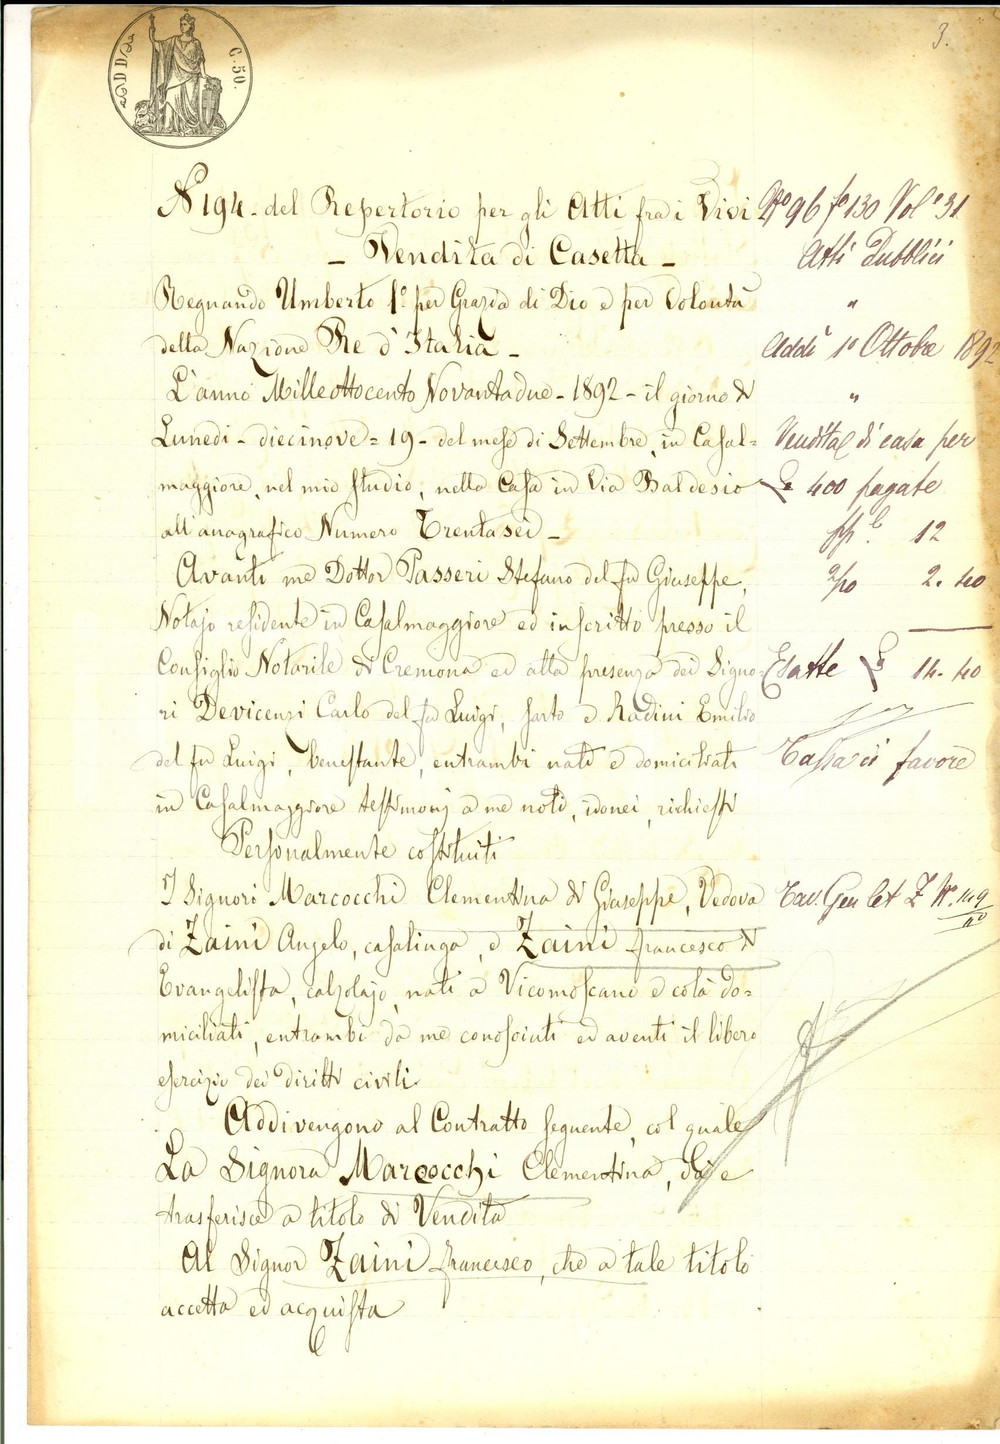 3.
C. 50.
N 194 - del Repertorio per gli Atti fra i Vivi
- Vendita di Casetta -
Regnando Umberto 1° per Grazia di Dio e per Volontà
della Nazione Re d'Italia -
L'anno Milleottocento Novantadue - 1892 - il giorno di
Lunedi - diecinove = 19 - del mese di Settembre, in Casal=
maggiore, nel mio studio, nella Casa in Via Baldesio
all'anagrafico Numero Trentasei -
Avanti me Dottor Passeri Stefano del fu Giuseppe,
Notajo residente in Casalmaggiore ed inscritto presso il
Consiglio Notarile di Cremona ed alla presenza dei Signo-
ri Devicenzi Carlo del fu Luigi, sarto e Radini Emilio
del fu Luigi, benestante, entrambi nati e domiciliati
in Casalmaggiore testimonj a me noti, idonei, richiesti
Personalmente costituiti
I Signori Marcocchi Clementina di Giuseppe, Vedova
di Zaini Angelo, casalinga, e Zaini Francesco di
Evangelista, calzolajo, nati a Vicomoscano e colà do=
miciliati, entrambi da me conosciuti ed aventi il libero
esercizio dei diritti civili
Addivengono al Contratto seguente, col quale
La Signora Marcocchi Clementina, dà e
trasferisce a titolo di Vendita
Al Signor Zaini Francesco, che a tale titolo
accetta ed acquista
N° 96 f° 130 Vol° 31
Atti Pubblici
"
Addì 1° Ottobre 1892
"
Vendita di casa per
£ 400 pagate
12
2. 40
Esatte £ 14. 40
Tassa di favore
Tav. Gen let Z N°. 149